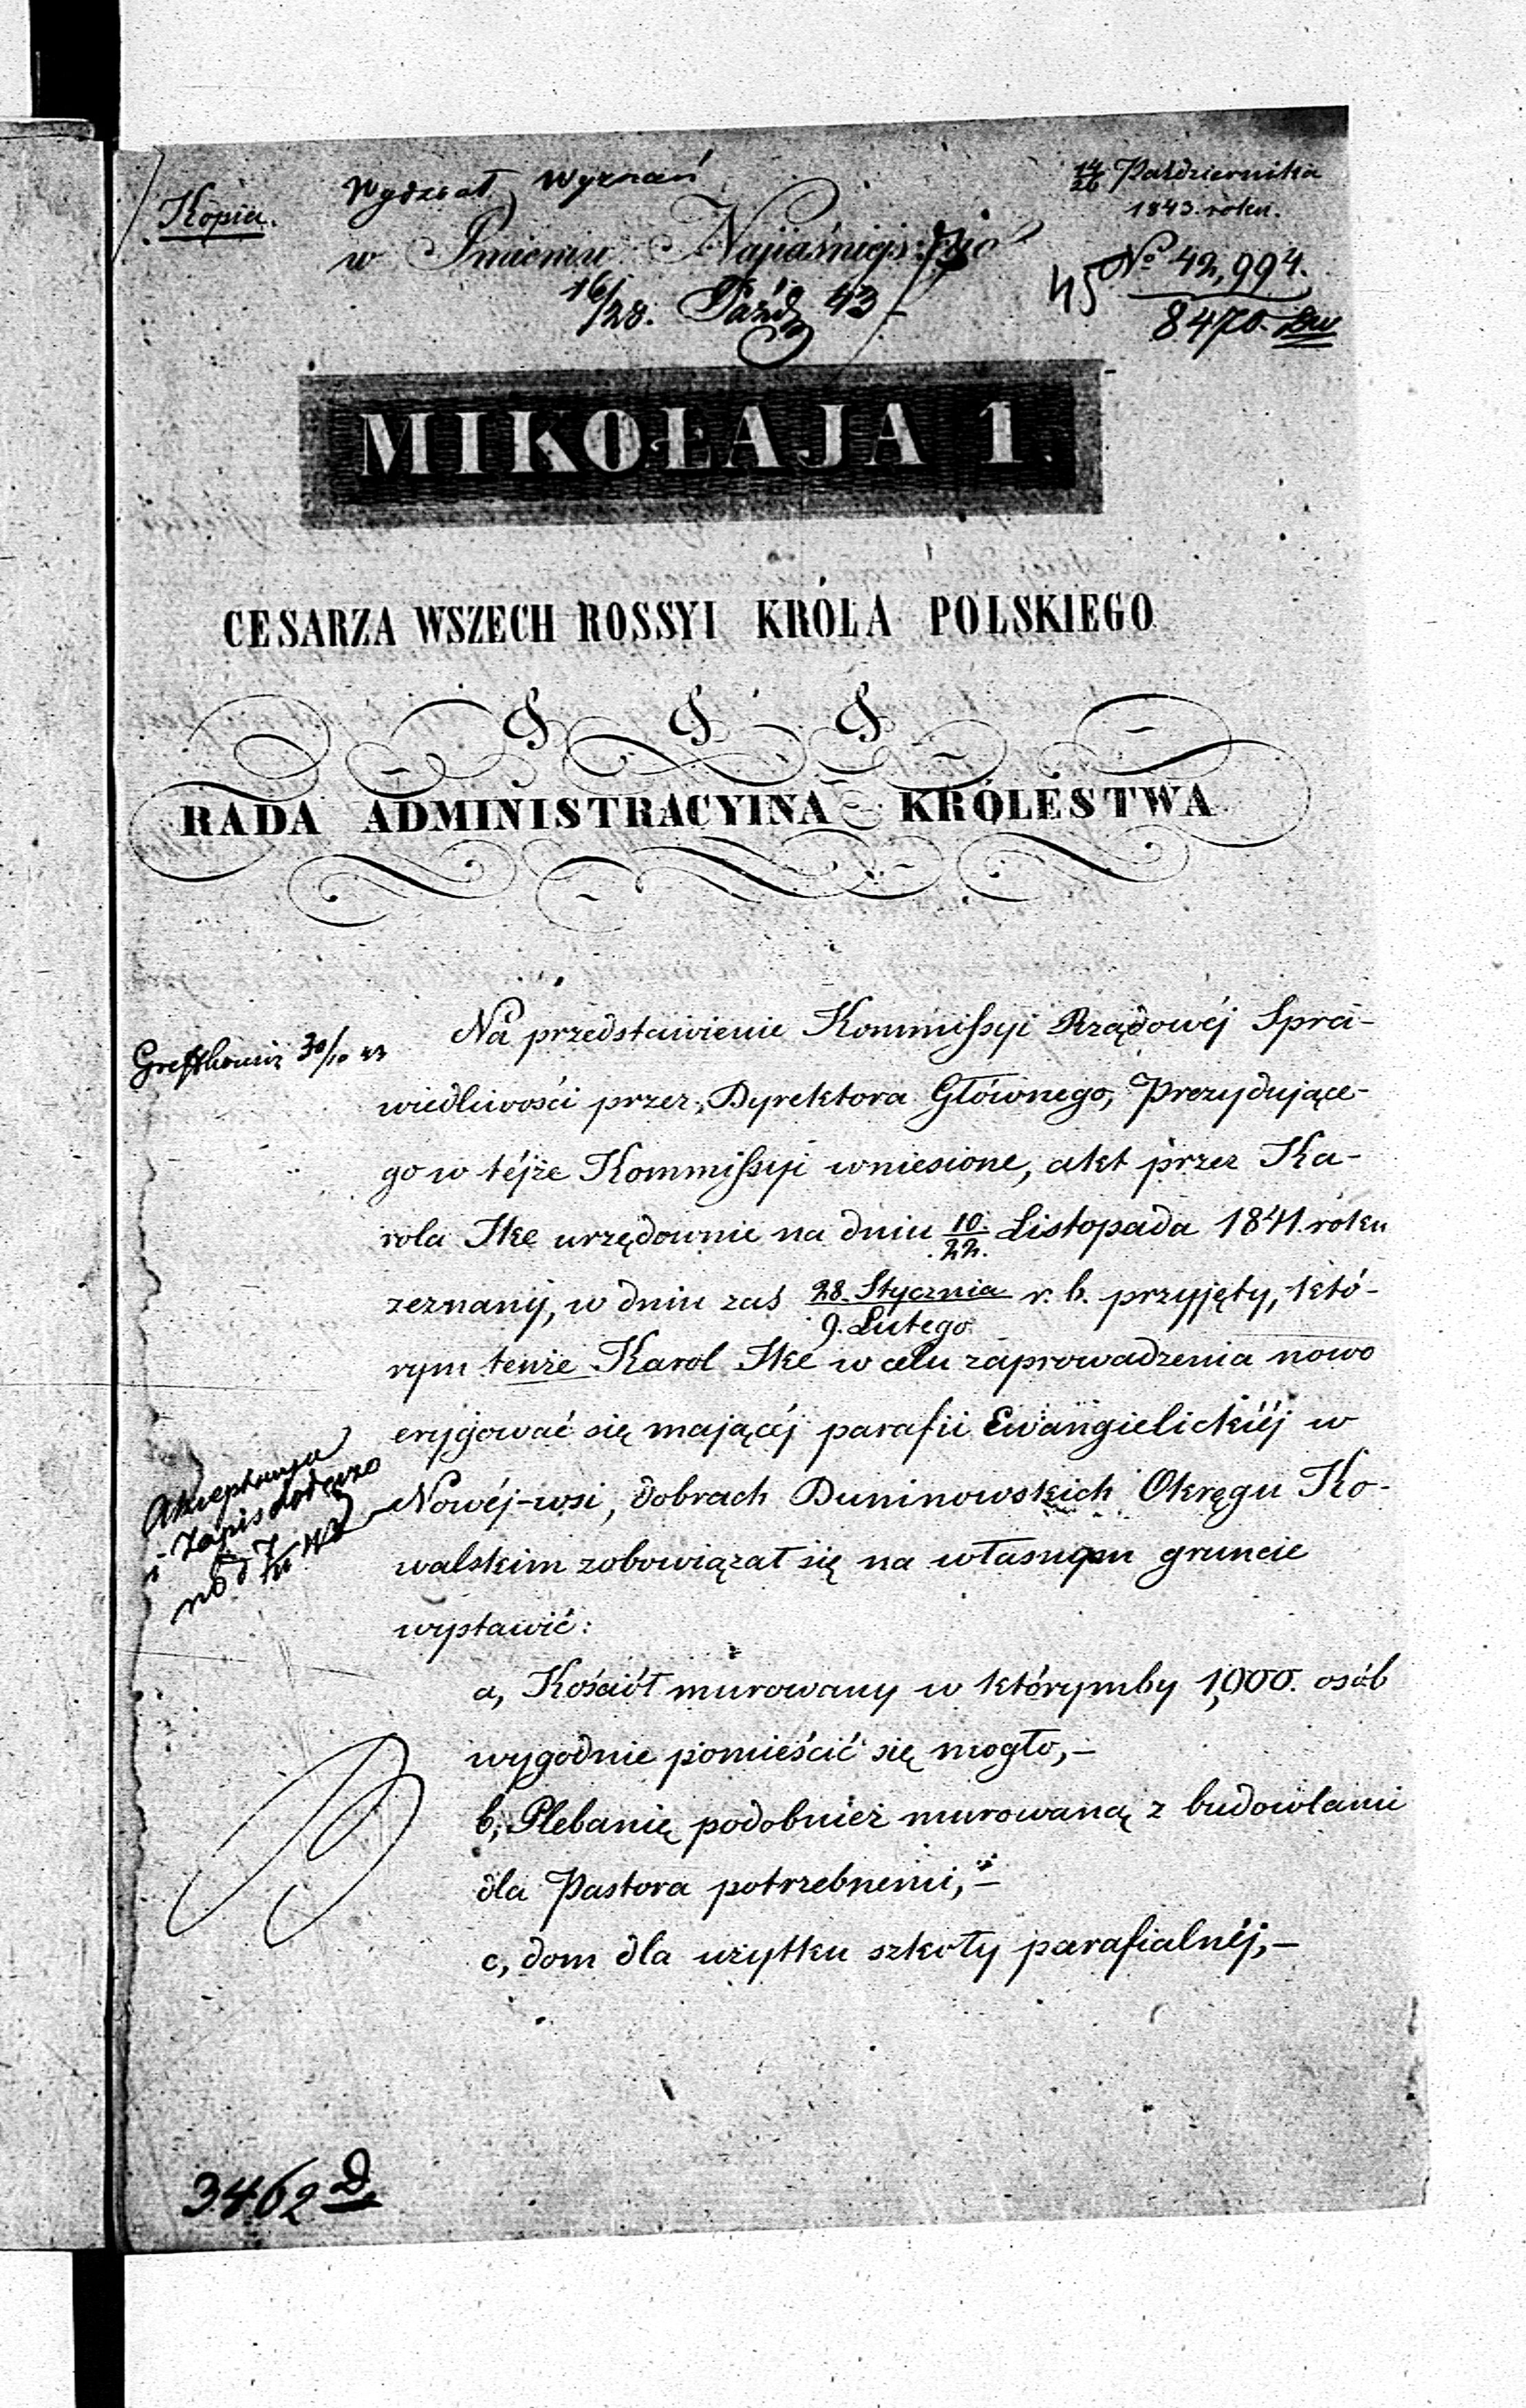 Kopia.
Wydział Wyznań
14/26 Października
1843. roku.
w Imieniu Najjaśniejszego
No 42,994.
16/28. Paźdz 43
45
8470.
MIKOŁAJA 1.
CESARZA WSZECH ROSSYI KRÓLA POLSKIEGO
& & &
RADA ADMINISTRACYINA KRÓLESTWA
Na przedstawienie Kommissyi Rządowéj Spra-
30/10 43
wiedliwości przez Dyrektora Głównego, Prezydujące-
go w téjże Kommissyi wniesione, akt przez Ka-
rola Ike urzędownie na dniu 10./22. Listopada 1841. roku
zeznany, w dniu zaś 28. Stycznia/9. Lutego r. b. przyjęty, któ-
rym tenże Karol Ike w celu zaprowadzenia nowo
erygować się mającéj parafii Ewangielickiéj w
Nowéj-wsi, dobrach Duninowskich Okręgu Ko-
walskim zobowiązał się na własnym gruncie
wystawić:
a, Kościół murowany w którymby 1,000. osób
wygodnie pomieścić się mogło,-
b, Plebanię podobnież murowaną z budowlami
dla Pastora potrzebnemi,-
c, dom dla użytku szkoły parafialnéj,-
3462 D